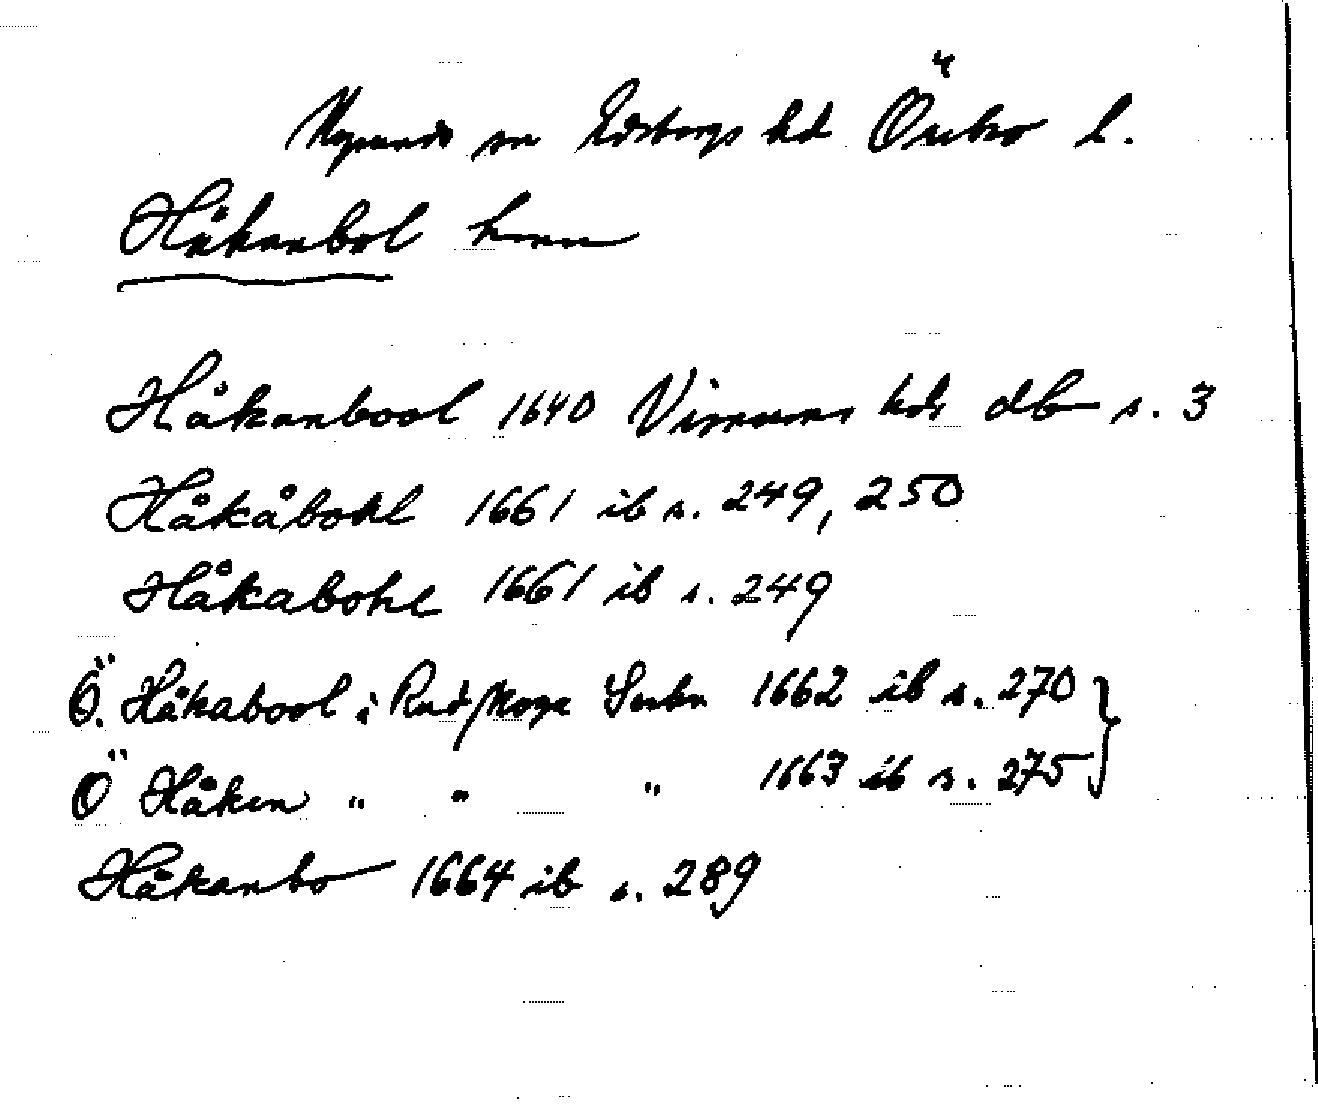 Nysunds sn Edsbergs hd Örebro l.
Håkanbol hmn
Håkanbool 1640 Visnums hds db s. 3
Håkåbohl 1661 ib s. 249, 250
Håkabohl 1661 ib s. 249
Ö. Håkabool i Rudskoga Sockn 1662 ib s. 270
Ö Håken " " " 1663 ib s. 275
Håkanbo 1664 ib s. 289